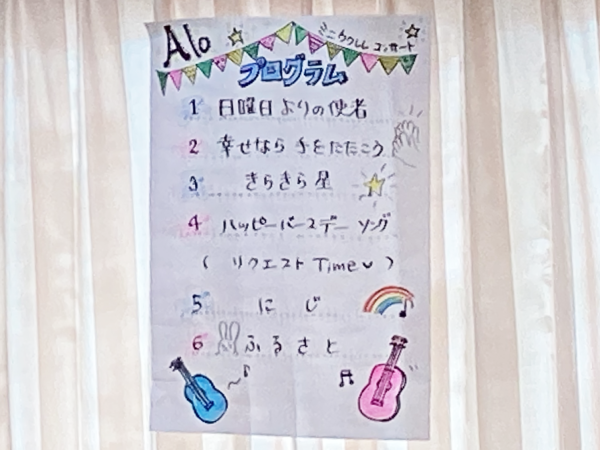 Alo
ミニウクレレ コンサート
プログラム
1 日曜日よりの使者
2 幸せなら手をたたこう
3 きらきら星
4 ハッピーバースデー ソング
( リクエスト Time )
5 にじ
6 ふるさと